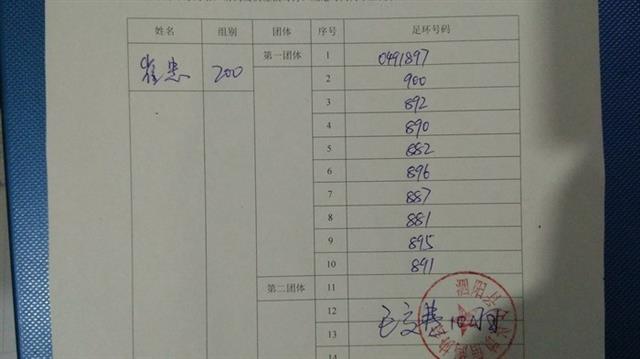 姓名 组别 团体 序号 足环号码
崔忠 200 第一团体 1 0491897
2 900
3 892
4 890
5 882
6 896
7 887
8 881
9 895
10 891
第二团体 11
12
13
14
泗阳县